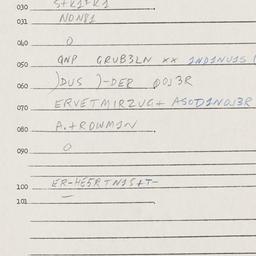 030
031 NONP1
040 O
050 GNP GRUB3LN xx 1ND1NU1S
060 )DUS )-DER DOJ3R
070 ERVETMIRZUG+ ASOD1NOJ3R
080 A.+ROWM1N
090 O
100 ER-HE5RTN1S+T-
101 —